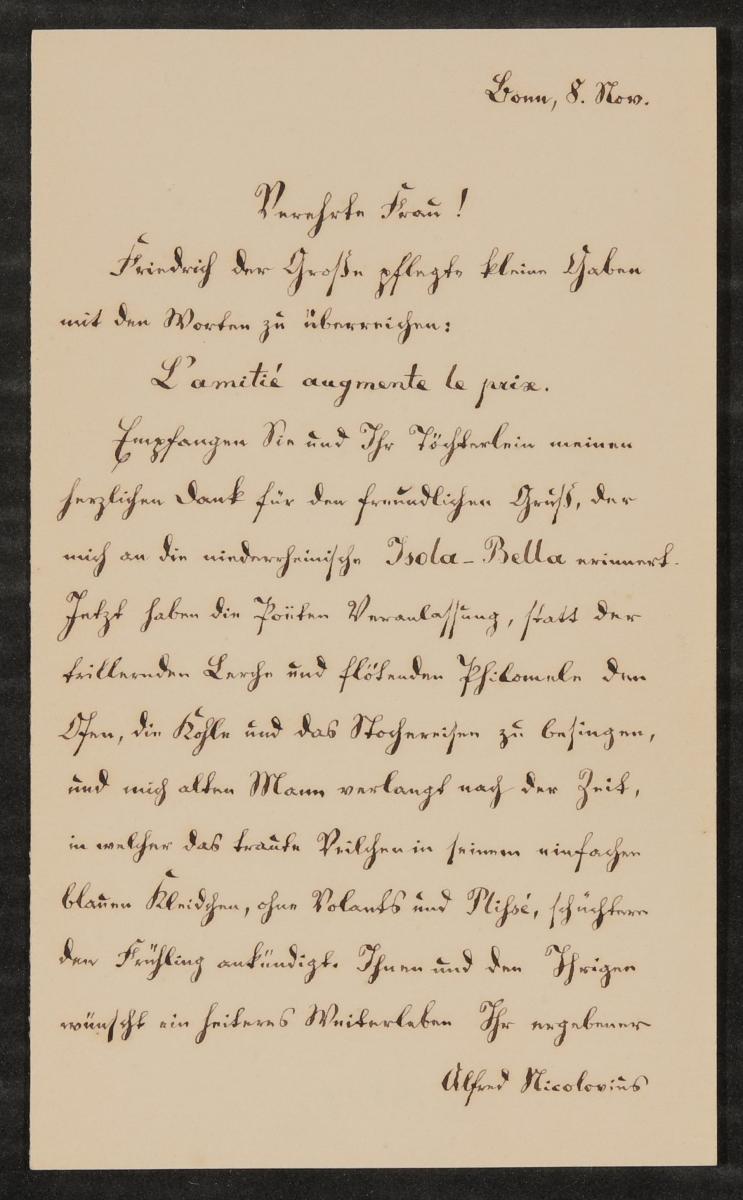 Bonn, 8. Nov.
Verehrte Frau!
Friedrich der Große pflegte kleine Gaben
mit den Worten zu überreichen:
L'amitié augmente le prix.
Empfangen Sie und Ihr Töchterlein meinen
herzlichen Dank für den freundlichen Gruß, der
mich an die niederrheinische Isola-Bella erinnert.
Jetzt haben die Poëten Veranlassung, statt der
trillernden Lerche und flötenden Philomele den
Ofen, die Kohle und das Stochereisen zu besingen,
und mich alten Mann verlangt nach der Zeit,
in welcher das traute Veilchen in seinem einfachen
blauen Kleidchen, ohne Volants und Plissé, schüchtern
den Frühling ankündigt. Ihnen und den Ihrigen
wünscht ein heiteres Weiterleben Ihr ergebener
Alfred Nicolovius